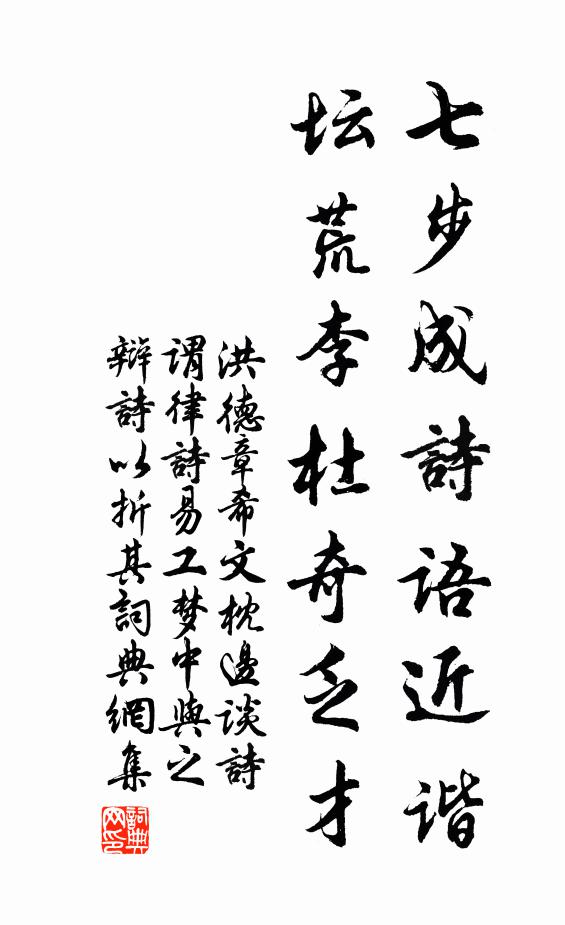 七步成詩语近谐
坛荒李杜奇乏才
洪德章希文枕邊谈詩
谓律詩易工梦中與之
辩詩以折其詞典網集
詞典網印